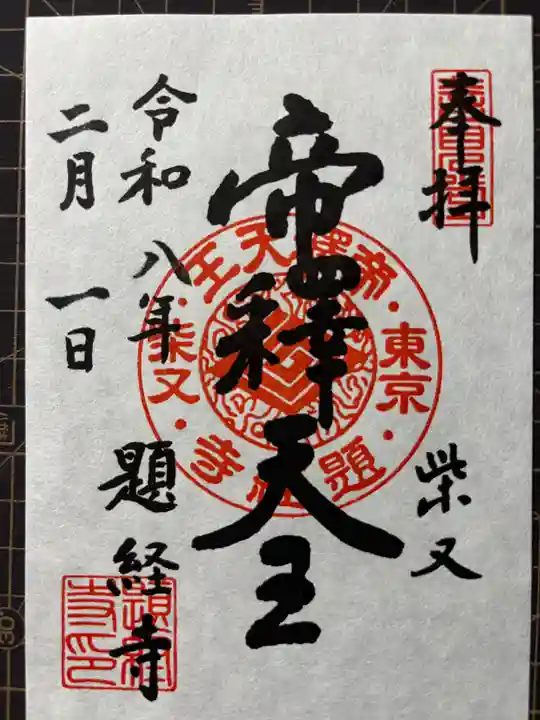 奉拝
柴又
帝釋天王
帝釋天王
東京
柴又
題経寺
令和八年
二月一日
題経寺